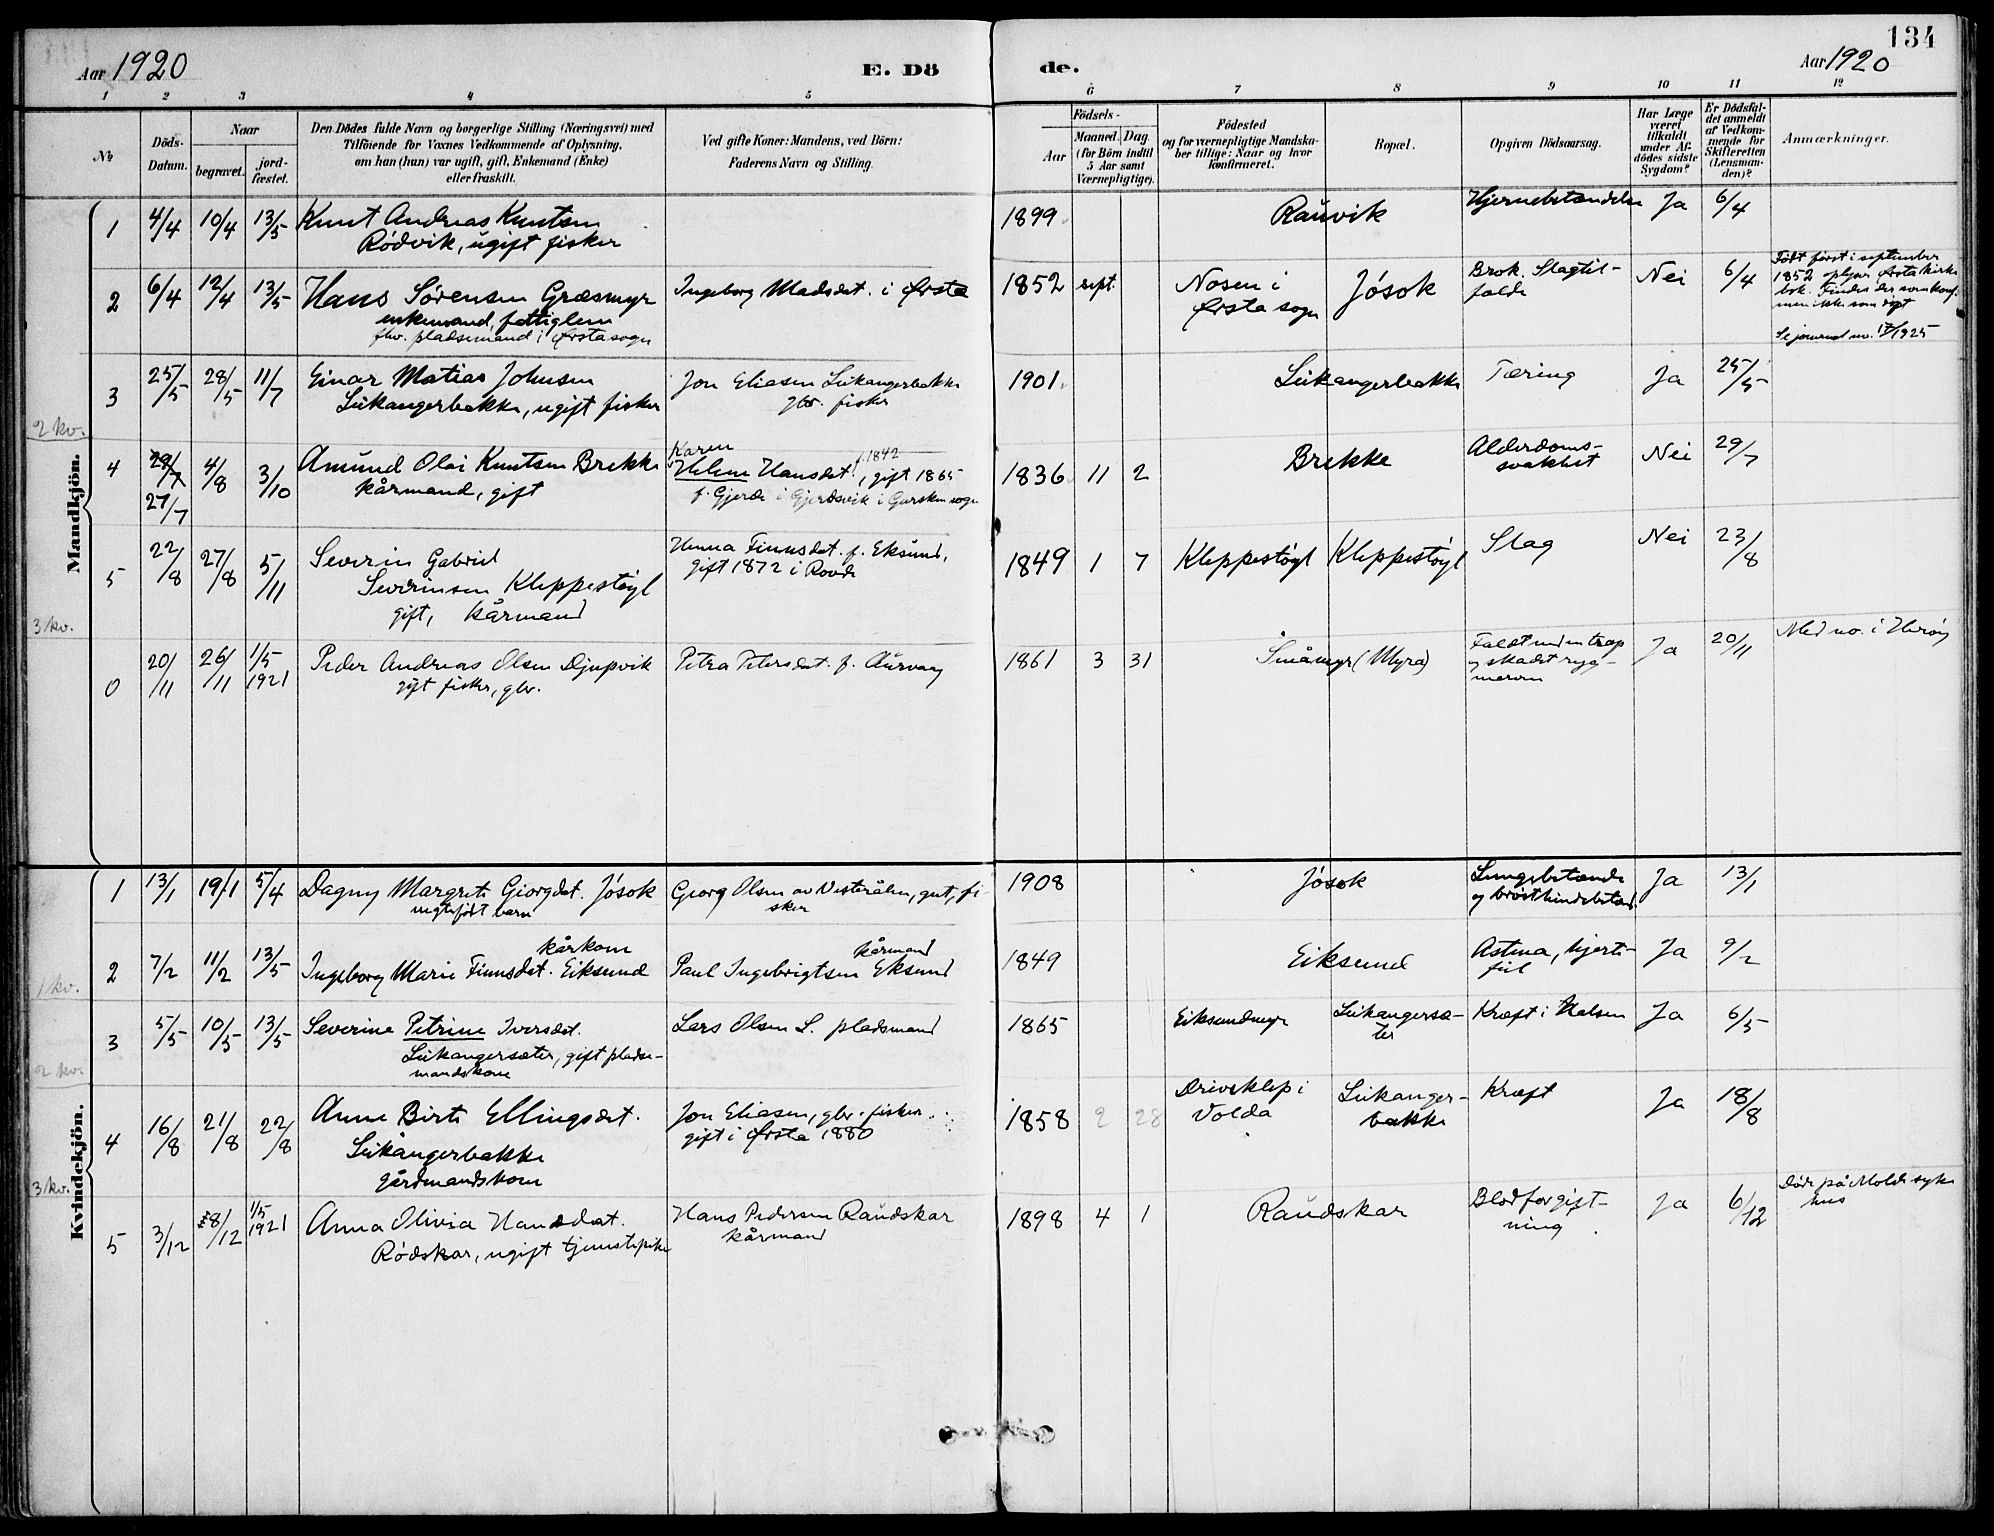 134
Aar 1920 E. Dö de. Aar 1920
1 2 3 4 5 6 7 8 9 10 11 12
№
Döds-
Datum.
Naar
begravet.
jord-
fæstet.
Den Dödes fulde Navn og borgerlige Stilling (Næringsvei) med
Tilföiende for Voxnes Vedkommende af Oplysning,
om han (hun) var ugift, gift, Enkemand (Enke)
eller fraskilt.
Ved gifte Koner: Mandens, ved Börn:
Faderens Navn og Stilling.
Födsels-
Aar
Maaned. Dag.
(for Börn indtil
5 Aar samt
Værnepligtige).
Födested
og for værnepligtige Mandska-
ber tillige: Naar og hvor
konfirmeret.
Bopæl.
Opgiven Dödsaarsag.
Har Læge
været
tilkaldt
under Af-
dödes sidste
Sygdom?
Er Dödsfal-
det anmeldt
af Vedkom-
mende for
Skifteretten
(Lensman-
den)?
Anmærkninger.
Mandkjön.
1 4/4 10/4 13/5 Knut Andreas Knutsen
Rødvik, ugift fisker
1899 Rauvik Hjernebetændelse Ja 6/4
2 6/4 12/4 13/5 Hans Sørensen Græsmyr
enkemand, fattiglem
fhv. pladsemand i Ørsta sogn
Ingeborg Madsdat. i Ørsta
1852 sept. Nosen i
Ørsta sogn
Jósok
Brok. Slagtil-
fælde
Nei 6/4
Født først i september
1852 oplyser Ørsta kirke
bok. Findes der som konf.
men ikke som døpt
Se journal nr. 17/1925
3 25/5 28/5 11/7 Einar Matias Johnsen
Leikangerbakke, ugift fisker
Jon Eliasen Leikangerbakke
gbr. fisker
1901 Leikangerbakke Tæring Ja 25/5
2 kv.
4 28/7 4/8 3/10 Amund Olai Knutsen Brekke
27/7 kårmand, gift
Karen
Helene Hansdat. f. 1842, gift 1865
f. Gjerde i Gjerdsvik i Gursken sogn
1836 11 2 Brekke
Alderdoms-
svakhet
Nei 29/7
5 22/8 27/8 5/11 Severin Gabriel
Severinsen Kleppestøyl
gift, kårmand
Hanna Finnsdat. f. Eksund,
gift 1872 i Rovde
1849 1 7 Kleppestøyl Kleppestøyl Slag Nei 23/8
3 kv.
0 20/11 26/11 1/5 1921 Peder Andreas Olsen Djupvik
gift fisker, gbr.
Petra Petersdat. f. Aurvaag
1861 3 31 Småmyr (Myra)
Faldt ned en trap
og skadet ryg-
marven
Ja 20/11 Med no. i Herøy
Kvindekjön.
1 13/1 19/1 5/4 Dagny Margrete Georgdat. Jósok
uegtefødt barn
Georg Olsen av Vesterålen, gut, fi-
sker
1908 Jósok
Lungebetænde
og brysthindebetænd.
Ja 13/1
2 7/2 11/2 13/5 Ingeborg Marie Finnsdat. Eiksund
kårkone
Paul Ingebrigtsen Eksund
kårmand
1849 Eiksund
Astma, hjerte-
feil
Ja 9/2
1 kv.
3 5/5 10/5 13/5 Severine Petrine Iversdat.
Leikangersæter, gift pladse-
mandskone
Lars Olsen L. pladsmand
1865 Eiksundmyr
Leikangersæ-
ter
Kræft i Halsen Ja 6/5
2 kv.
4 16/8 21/8 22/8 Anne Birte Ellingsdat.
Leikangerbakke
gårdmandskone
Jon Eliasen, gbr. fisker.
gift i Ørsta 1880
1858 2 28
Driveklep i
Volda
Leikanger-
bakke
Kræft Ja 18/8
3 kv.
5 3/12 8/12 1/5 1921 Anna Olivia Hansdat.
Rødskar, ugift tjenestepike
Hans Pedersen Raudskar
kårmand
1898 4 1 Raudskar
Blodforgift-
ning
Ja 6/12
Døde på Molde syke
hus